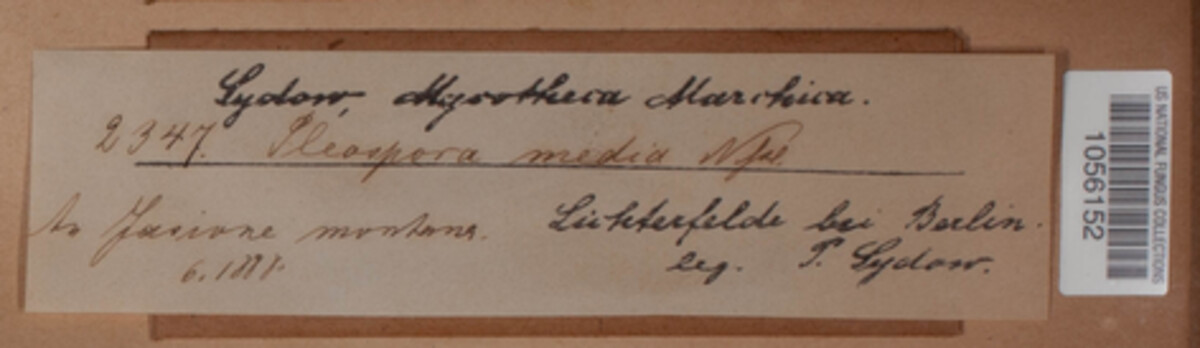 Sydow, Mycotheca Marchica.
2347. Pleospora media Nssl.
An Jasione montana.
6.1888.
Lichterfelde bei Berlin.
leg. P. Sydow.
US NATIONAL FUNGUS COLLECTIONS
1056152